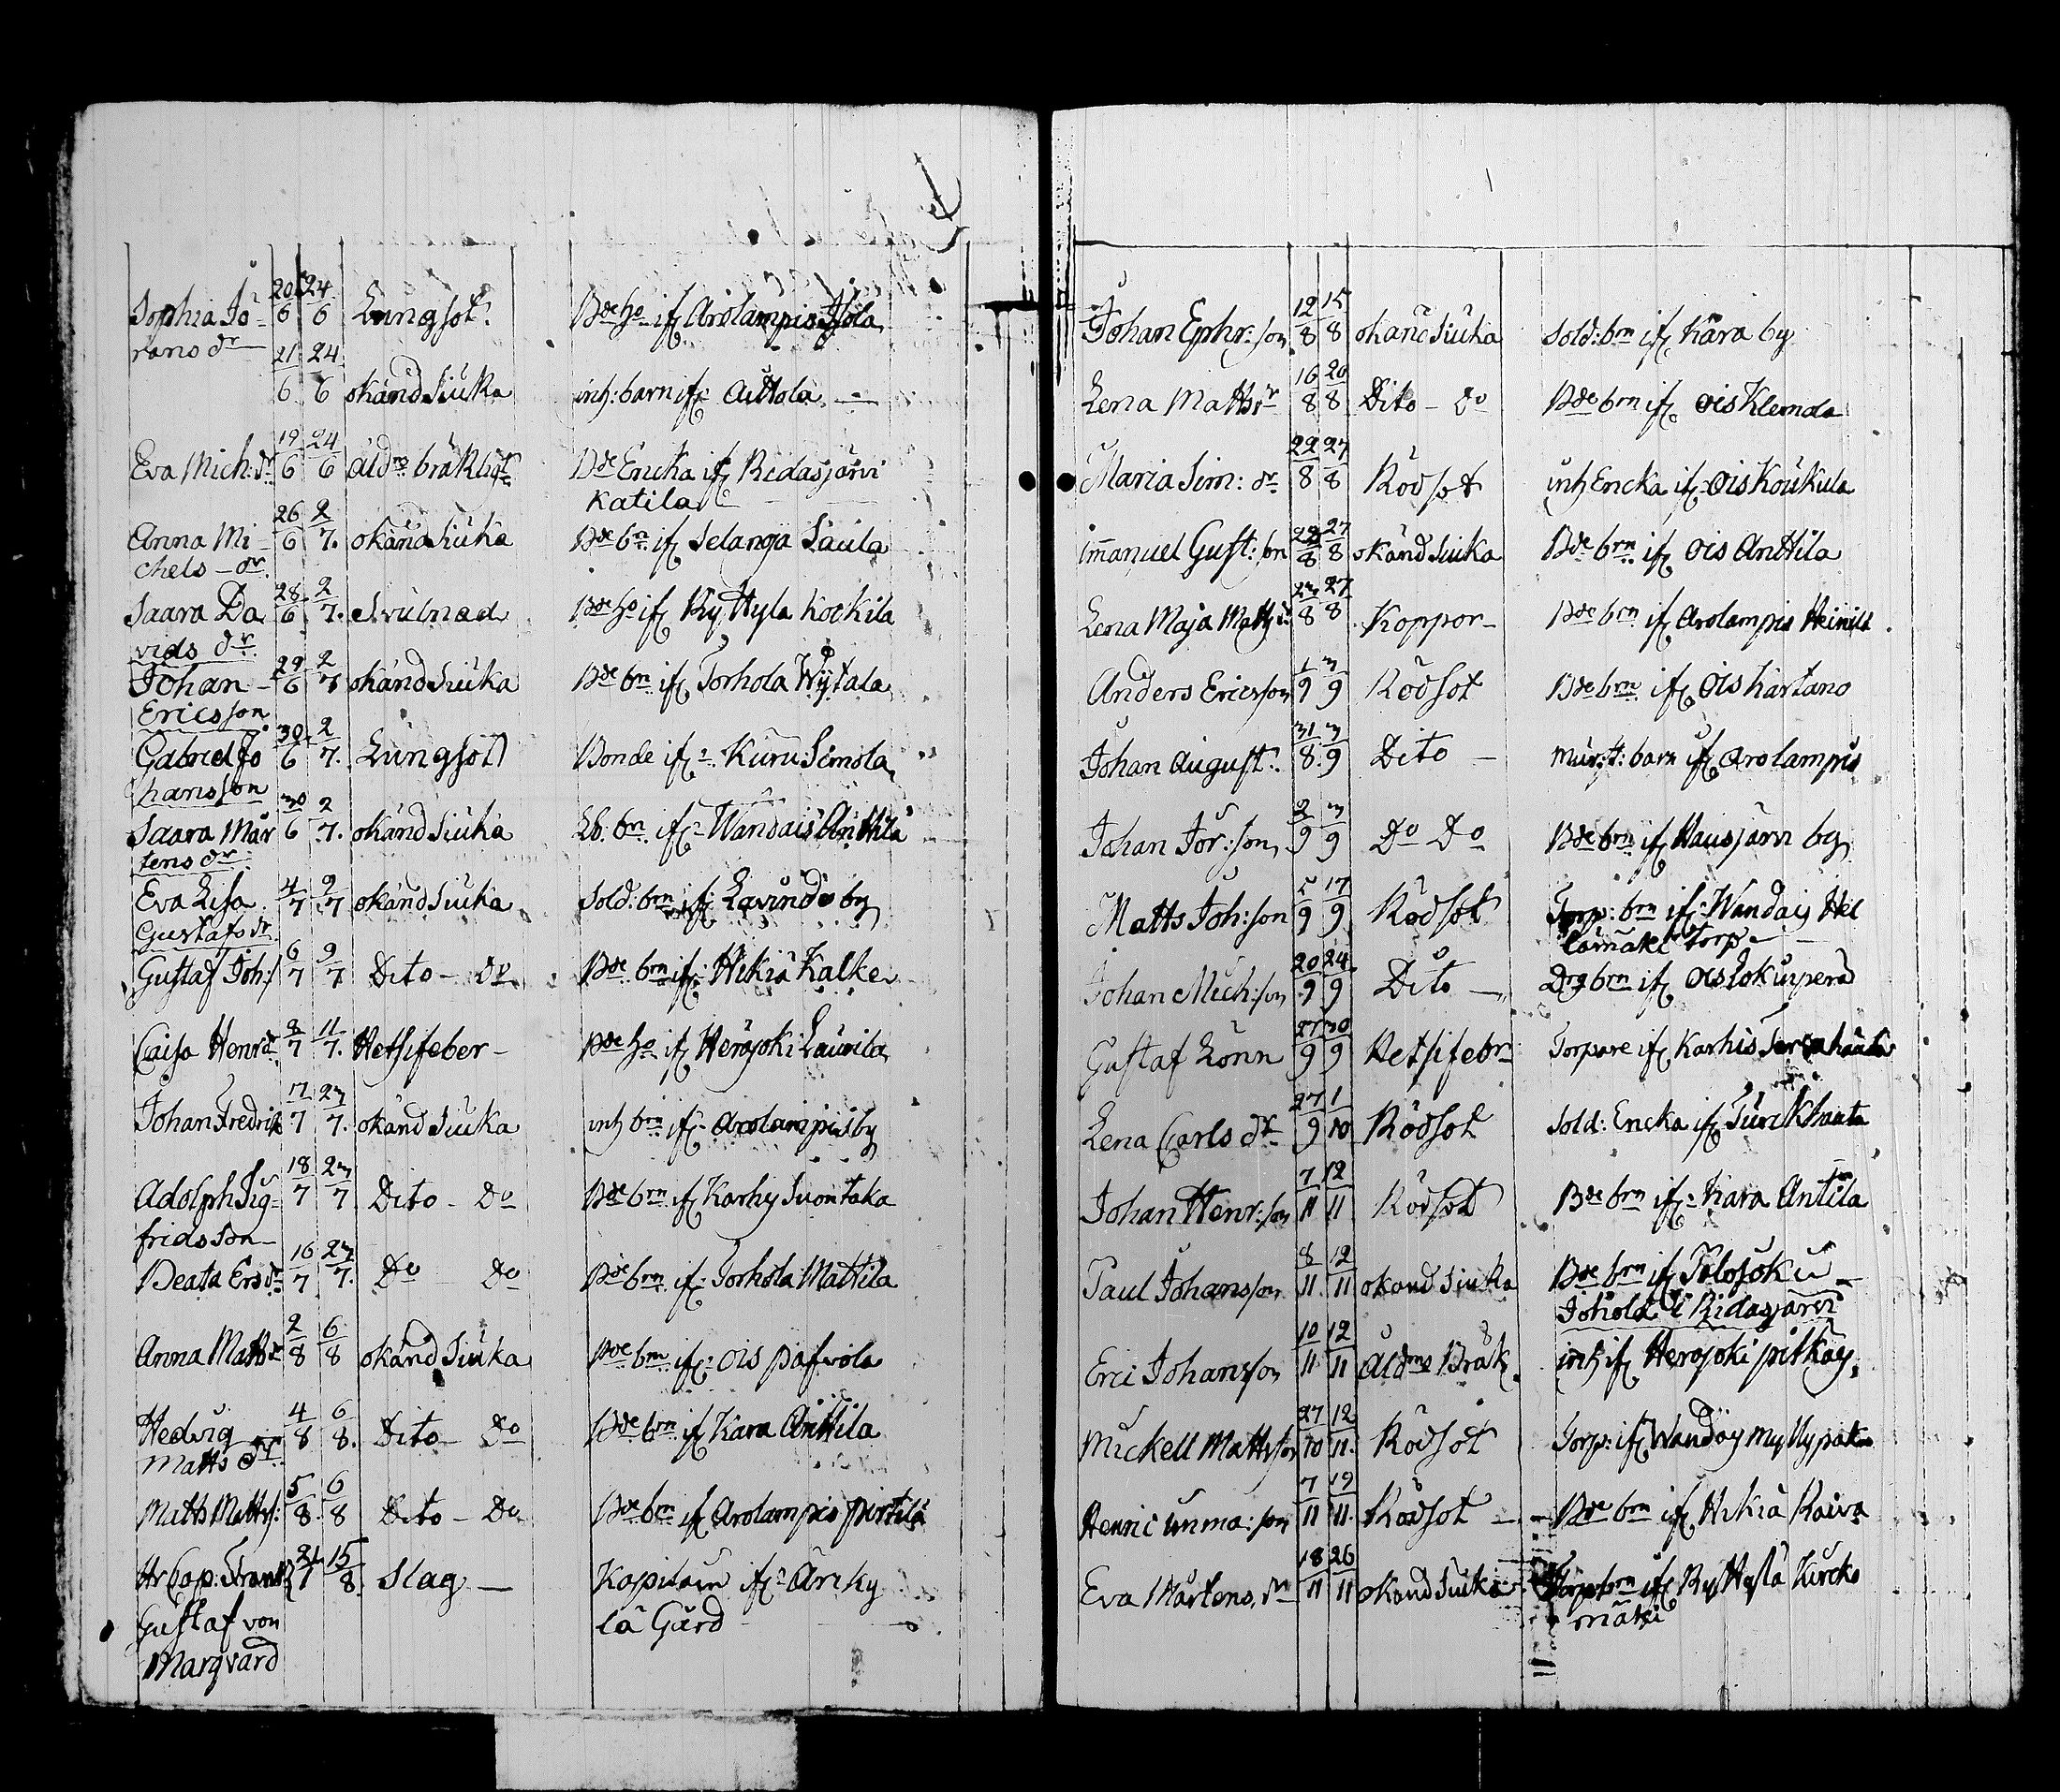 Sophia Jö- 20/6 24/6 Lungsot. Bde ho if Arolampis Isola
rans dr
21/6 24/6 okänd Siuka inh: barn if Aittola
Eva Mich: dr 19/6 24/6 åldrs bräklight Bde Encka if Ridasjärvi
Katila
Anna Mi- 26/6 2/7. okänd Siuka Bde bn if Selänga Saüla
chels - dr.
Saara Da 28/6 2/7. Svulnad Bde ho if Ryttyla Kockila
vids dr.
Johan - 29/6 2/7 okänd Siuka Bde bn if Torhola Wÿtala
Ericsson
Gabriel Jo 30/6 2/7. Lungsot Bonde if Kuru Simola
hansson
Saara Mår 30/6 2/7. okänd Siuka Lb: bn if Wandais Anttila
tens dr
Eva Lisa 4/7 9/7 okänd Siuka Sold: brn if Lavindo by
Gustafs dr.
Gustaf Joh:s 6/7 9/7 Dito - do Bde brn if Hikiä Kalke
Caisa Henr dr 8/7 11/7. Hetsifeber - Bde ho if Herajoki Laurila
Johan Fredrik 17/7 23/7. okänd Siuka inh brn if Arolampis by
Adolph Sig- 18/7 23/7 Dito - Do Bde brn if Karhy Suontaka
fridsson
Beata Ers dr 16/7 23/7. Do Do Bde brn if Torhola Mattila
Anna Matts dr 2/8 6/8 okänd Siuka Bde brn if Ois Pafvola
Hedvig 4/8 6/8. Dito - Do Bde brn if Kara Anttila
Matts dr.
Matts Matts: 5/8 6/8 Dito - Do Bde brn if Arolampis Pirtilä
Hr Cap: Frants 21/7 15/8 Slag - Kapitain if Äriky
Gustaf von lä Gård
Marqvard
Johan Ephr: son 12/8 15/8 okänd Siuka Sold: brn if Kara by
Lena Matts dr 16/8 20/8 Dito - Do Bde brn if Ois Klemola
Maria Sim: dr 22/8 27/8 Rödsot inh Encka if Ois Koukula
Imanuel Gust: sn 22/8 27/8 okänd Siuka Bde brn if Ois Anttila
Lena Maja Matts d: 23/8 27/8 Koppor - Bde brn if Arolampis Heinilä
Anders Ericsson 1/9 3/9 Rödsot Bde brn if Ois Kartano
Johan August: 31/8 3/9 Dito - Mur:t: barn if Arolampis
Johan Jör: son 2/9 3/9 Do Do Bde brn if Hausjärvi by
Matts Joh: son 5/9 17/9 Rödsot Torp: brn if Wandais Hel
lamäki Torp -
Johan Mich: son 20/9 24/9 Dito - Drg brn if Ois Tokünperä
Gustaf Lönn 27/9 30/9 Hetsifebr: Torpare if Karhis
Lena Carls dr 27/9 1/10 Rödsot Sold: Encka if Turckhauta
Johan Henr: son 7/11 12/11 Rödsot Bde brn if Kara Antila
Paul Johansson 8/11 12/11 okand Siuka Bde brn if
i Ridasjärvi
Eric Johansson 10/11 12/11 Åldms Bräk. inh if Herajoki pitkäy
Mickell Mattsson 27/10 12/11. Rödsot Torp: if Wandöy Myllypaka
Henric Unma: son 7/11 19/11. Rödsot - Bde brn if Hikiä Kaiva
Eva Mårtens dr 18/11 26/11 okänd Siuka Torp brn if Ryttylä Kircko
mäki